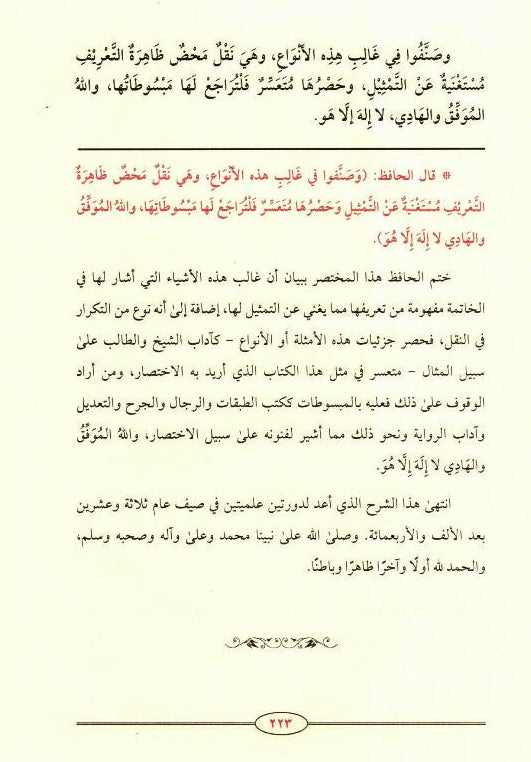 وصَنَّفُوا فِي غَالِبِ هِذِه الأَنْوَاعِ، وهَيَ نَقْلٌ مَحْضٌ ظَاهِرَةُ التَّعْرِيْفِ
مُسْتَغْنِيَةٌ عَنْ التَّمْثِيْلِ، وحَصْرُهَا مُتَعَسِّرٌ فَلْتُرَاجَعْ لَهَا مَبْسُوطَاتُها، واللهُ
المُوَفِّقُ والهَادِي، لا إِلهَ إلَّا هَو.
* قال الحافظ: (وَصَنَّفوا في غَالبِ هذه الأَنْوَاعِ، وهَي نَقْلٌ مَحْضٌ ظاهِرَةٌ
التَّعْرِيْفِ مُسْتَغْنِيَةٌ عَنْ التَّمْثِيْلِ وَحَصْرُهَا مُتَعَسِّرٌ فَلْتُرَاجَعْ لَها مَبْسُوطَاتِهَا، واللهُ المُوَفِّقُ
والهَادِي لا إِلَهَ إِلَّا هُوَ).
ختم الحافظ هذا المختصر ببيان أن غالب هذه الأشياء التي أشار لها في
الخاتمة مفهومة من تعريفها مما يغني عن التمثيل لها، إضافة إلىٰ أنه نوع من التكرار
في النقل، فحصر جزئيات هذه الأمثلة أو الأنواع - كآداب الشيخ والطالب علىٰ
سبيل المثال - متعسر في مثل هذا الكتاب الذي أريد به الاختصار، ومن أراد
الوقوف علىٰ ذلك فعليه بالمبسوطات ككتب الطبقات والرجال والجرح والتعديل
وآداب الرواية ونحو ذلك مما أشير لفنونه علىٰ سبيل الاختصار، واللهُ المُوَفِّقُ
والهَادِي لا إِلَهَ إِلَّا هُوَ.
انتهىٰ هذا الشرح الذي أعد لدورتين علميتين في صيف عام ثلاثة وعشرين
بعد الألف والأربعمائة. وصلىٰ الله علىٰ نبينا محمد وعلىٰ وآله وصحبه وسلم،
والحمد لله أولًا وآخرًا ظاهرًا وباطنًا.
٢٢٣